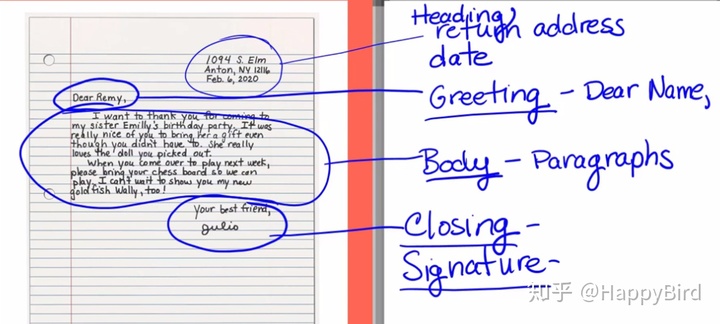 1094 S. Elm
Anton, NY 12116
Feb. 6, 2020
Dear Remy,
I want to thank you for coming to
my sister Emilly's birthday party. It was
really nice of you to bring her a gift even
though you didn't have to. She really
loves the doll you picked out.
When you come over to play next week,
please bring your chess board so we can
play. I can't wait to show you my new
goldfish Wally, too!
Your best friend,
Julio
Heading,
return address
date
Greeting - Dear Name,
Body - Paragraphs
Closing -
Signature -
知乎 @HappyBird